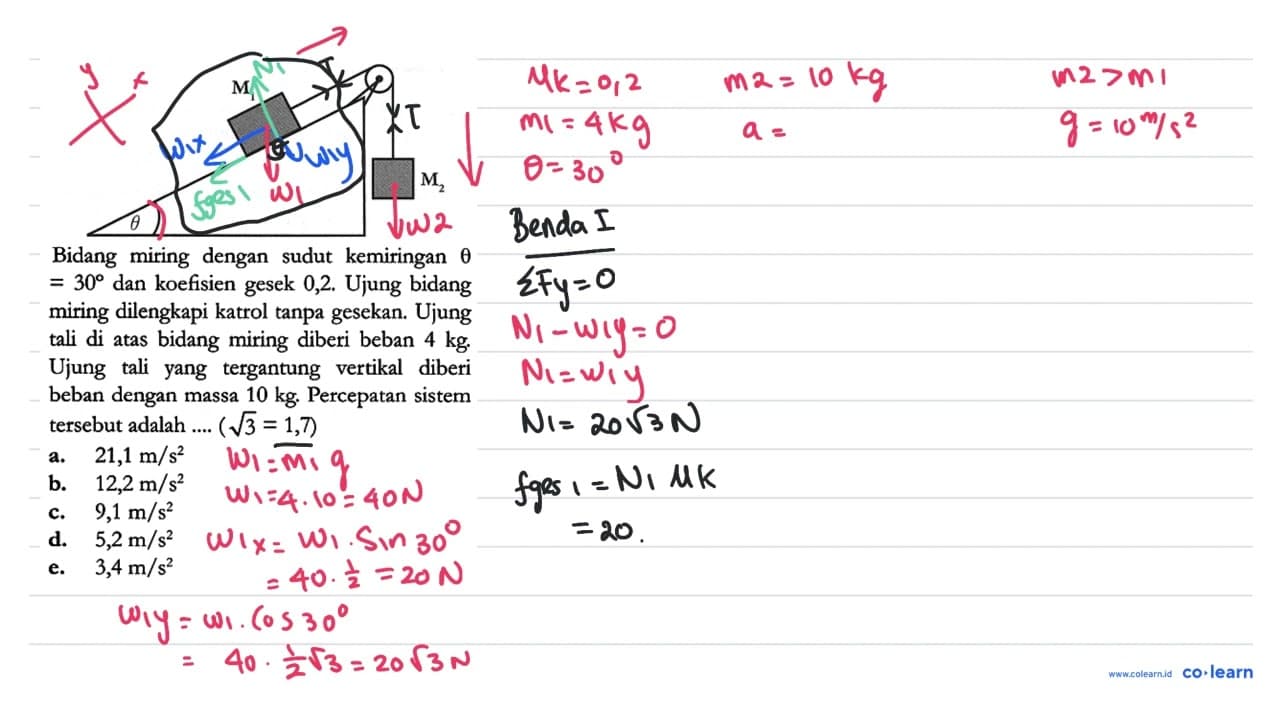 y x
M₁ N₁ T
T
w1x w1y
fges 1 w1
M₂
θ w2
Bidang miring dengan sudut kemiringan θ
= 30° dan koefisien gesek 0,2. Ujung bidang
miring dilengkapi katrol tanpa gesekan. Ujung
tali di atas bidang miring diberi beban 4 kg.
Ujung tali yang tergantung vertikal diberi
beban dengan massa 10 kg. Percepatan sistem
tersebut adalah .... (√3 = 1,7)
a. 21,1 m/s²
b. 12,2 m/s²
c. 9,1 m/s²
d. 5,2 m/s²
e. 3,4 m/s²
W1 = m1 g
W1 = 4.10 = 40N
W1x = W1 . Sin 30°
= 40 . ½ = 20 N
W1y = W1 . Cos 30°
= 40 . ½√3 = 20√3 N
Mk = 0,2 m2 = 10 kg m2 > m1
m1 = 4 kg a = g = 10 m/s²
θ = 30°
Benda I
ΣFy = 0
N1 - W1y = 0
N1 = W1y
N1 = 20√3 N
fges 1 = N1 Mk
= 20.
www.colearn.id co·learn